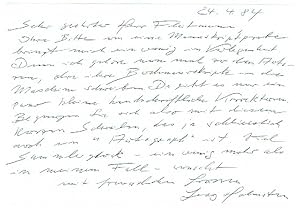 24.4.84
Sehr geehrter Herr Fleischmann
Ihre Bitte um eine Manuskriptprobe
bringt mich ein wenig in Verlegenheit
Denn ich gehöre nun mal zu den Auto-
ren, die ihre in die
Maschine schreiben. Da gibt es nur ein
paar kleine handschriftliche Korrekturen.
Begnügen Sie sich also mit diesem
kurzen Schreiben, das ja schliesslich
auch ein "Autograph" ist. Viel
Sammlerglück - ein wenig mehr als
in meinem Fall - wünscht
mit freundlichen Grüssen